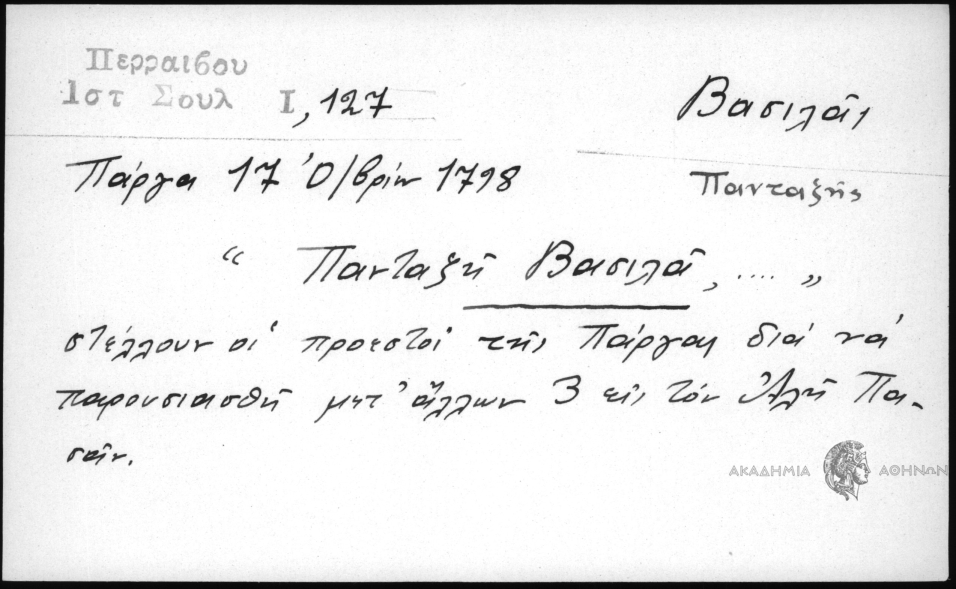 Περραιβου
Ιστ Σουλ Ι, 127
Βασιλᾶς
Πάργα 17 Ὀ/βρίου 1798
Πανταζῆς
“ Πανταζῆ Βασιλᾶ, .... „
στέλλουν οἱ προεστοὶ τῆς Πάργας διά νά
παρουσιασθῆ μετ' ἄλλων 3 εἰς τόν Ἀλῆ Πα-
σᾶν.
ΑΚΑΔΗΜΙΑ ΑΘΗΝΩΝ